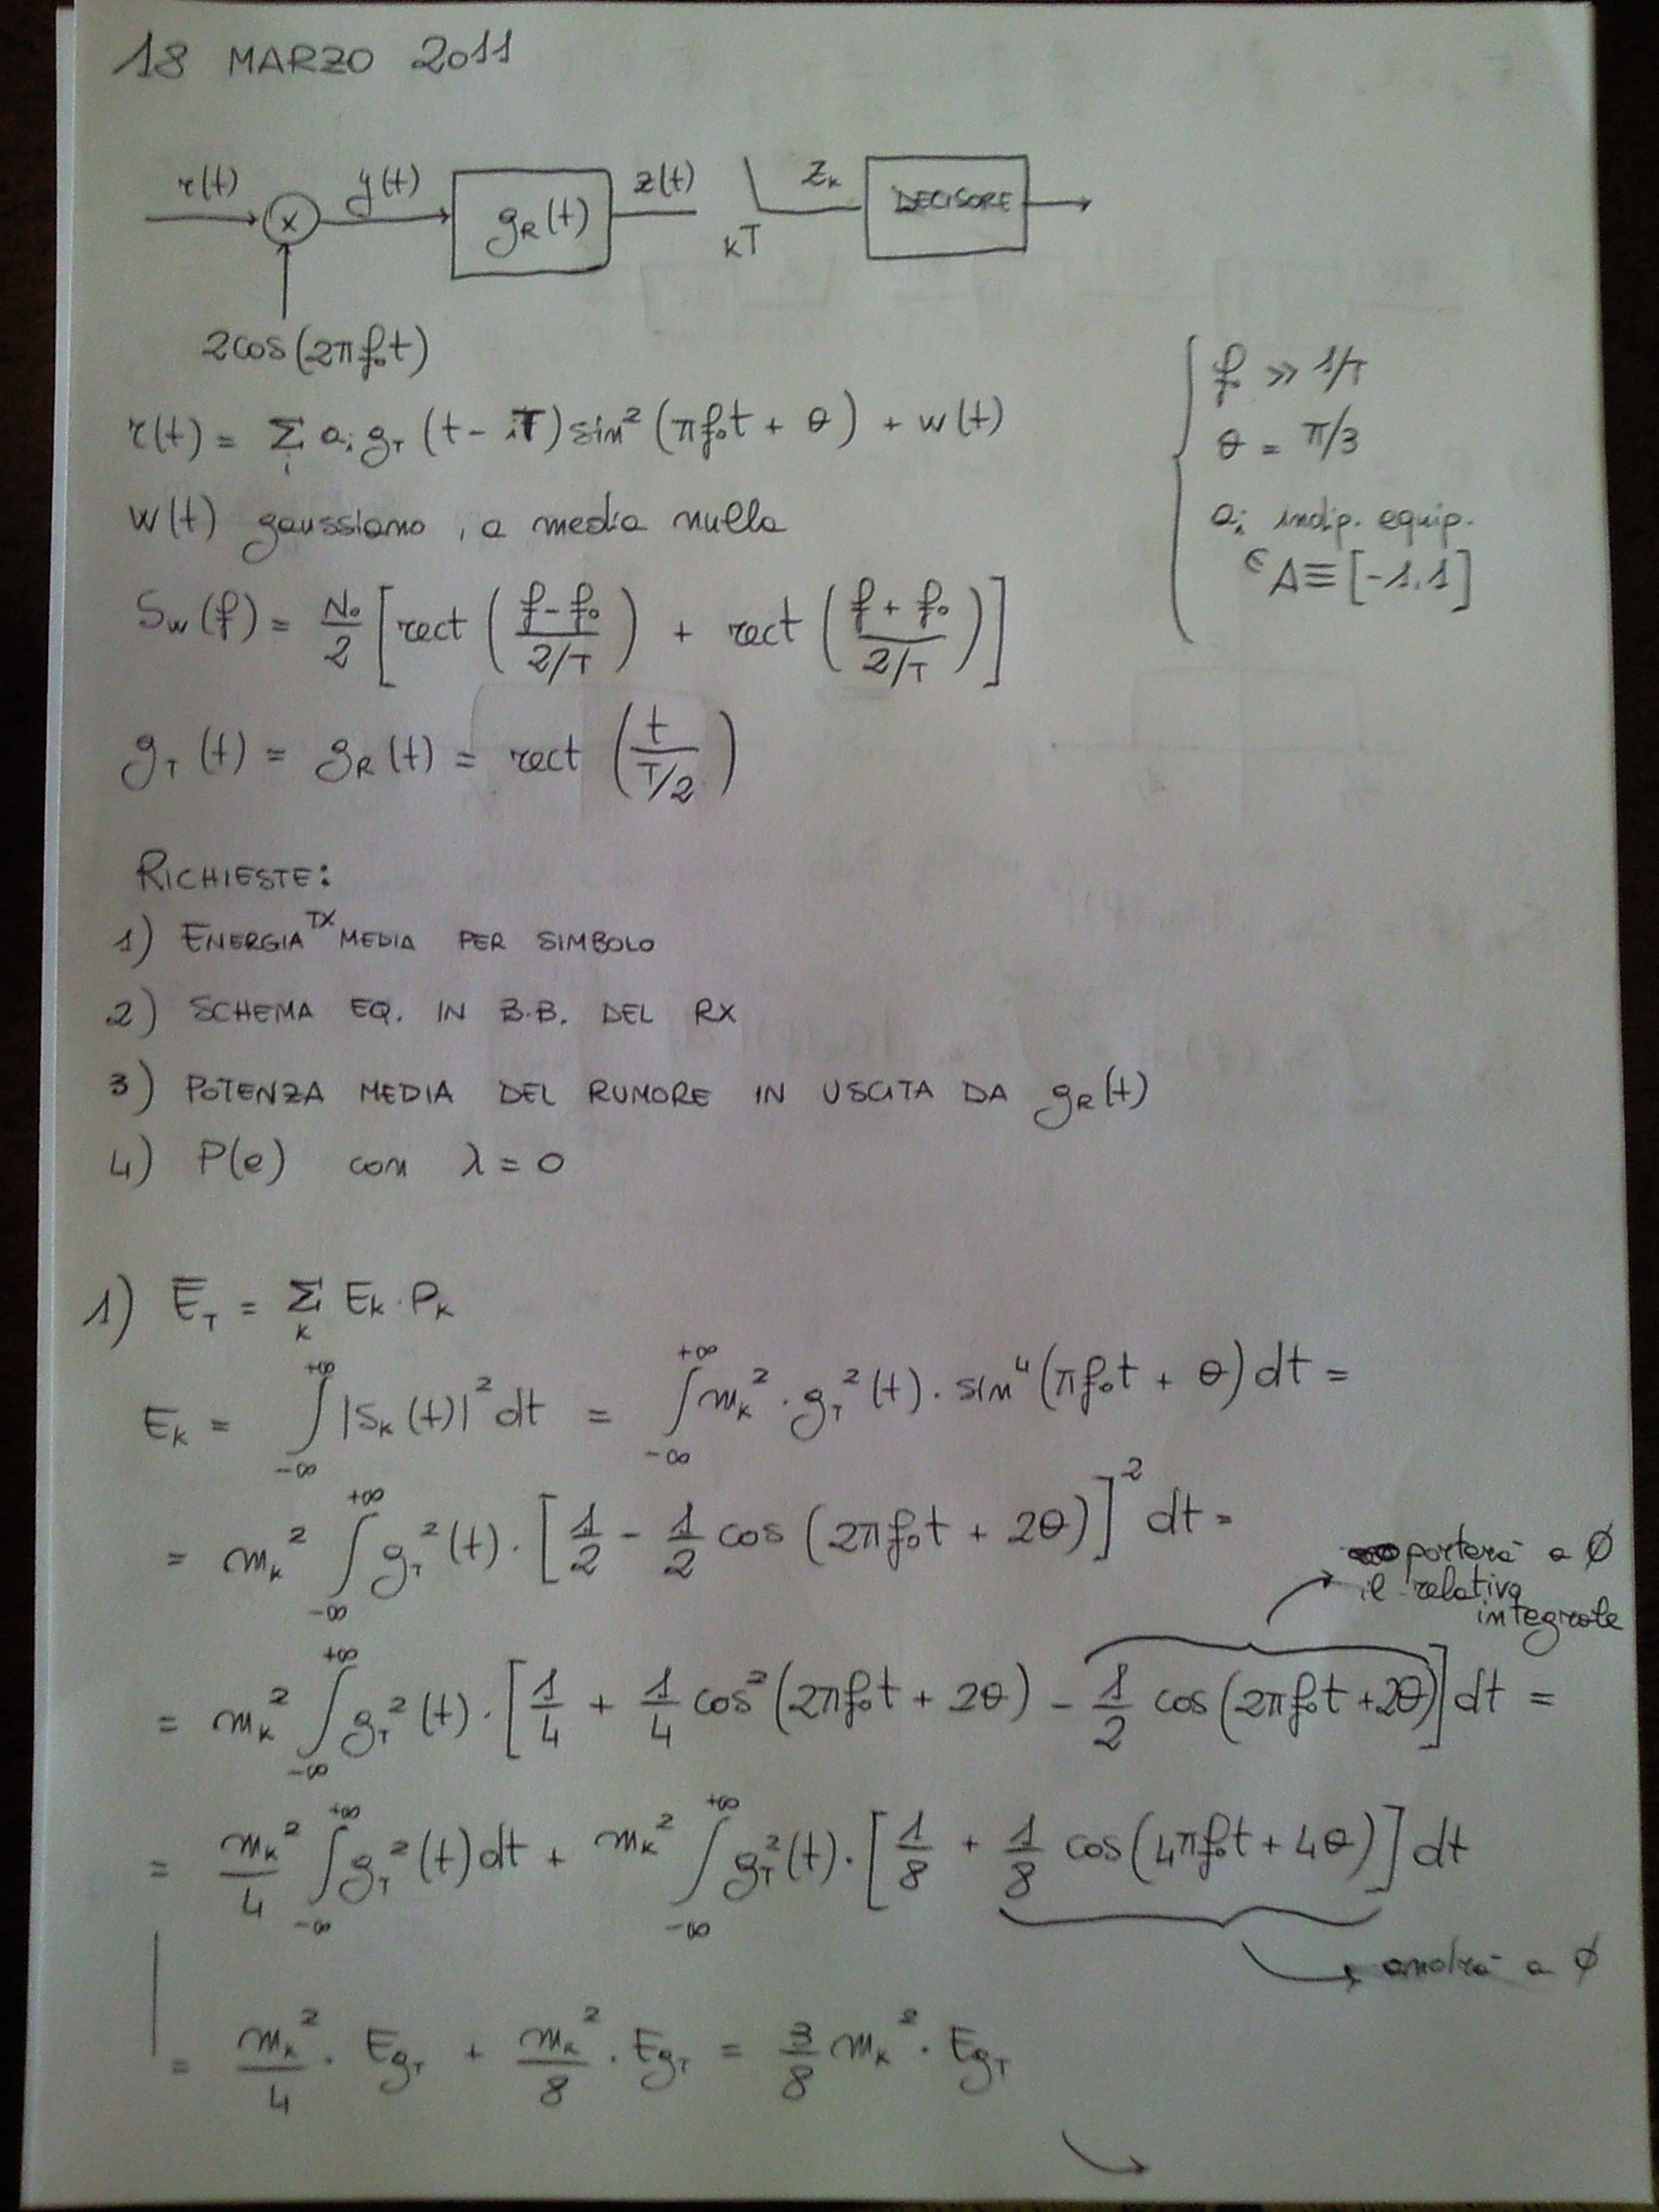 18 MARZO 2011
r(t) × y(t) g_R(t) z(t) kT z_k DECISORE
2cos(2πf₀t)
r(t) = Σ_i a_i g_T (t - iT) sin² (πf₀t + θ) + w(t)
w(t) gaussiano, a media nulla
S_w(f) = N₀/2 [rect ((f - f₀)/(2/T)) + rect ((f + f₀)/(2/T))]
g_T (t) = g_R (t) = rect (t/(T/2))
{ f₀ >> 1/T
θ = π/3
a_i indip. equip.
∈ A ≡ [-1,1]
RICHIESTE:
1) ENERGIA TX MEDIA PER SIMBOLO
2) SCHEMA EQ. IN B.B. DEL RX
3) POTENZA MEDIA DEL RUMORE IN USCITA DA g_R(t)
4) P(e) con λ = 0
1) Ē_T = Σ_k E_k · P_k
E_k = ∫_{-∞}^{+∞} |S_k(t)|² dt = ∫_{-∞}^{+∞} m_k² · g_T²(t) · sin⁴(πf₀t + θ) dt =
= m_k² ∫_{-∞}^{+∞} g_T²(t) · [1/2 - 1/2 cos (2πf₀t + 2θ)]² dt =
porterà a ∅
il relativo
integrale
= m_k² ∫_{-∞}^{+∞} g_T²(t) · [1/4 + 1/4 cos²(2πf₀t + 2θ) - 1/2 cos(2πf₀t + 2θ)] dt =
= m_k²/4 ∫_{-∞}^{+∞} g_T²(t) dt + m_k² ∫_{-∞}^{+∞} g_T²(t) · [1/8 + 1/8 cos(4πf₀t + 4θ)] dt
andrà a ∅
= m_k²/4 · E_{g_T} + m_k²/8 · E_{g_T} = 3/8 m_k² · E_{g_T}